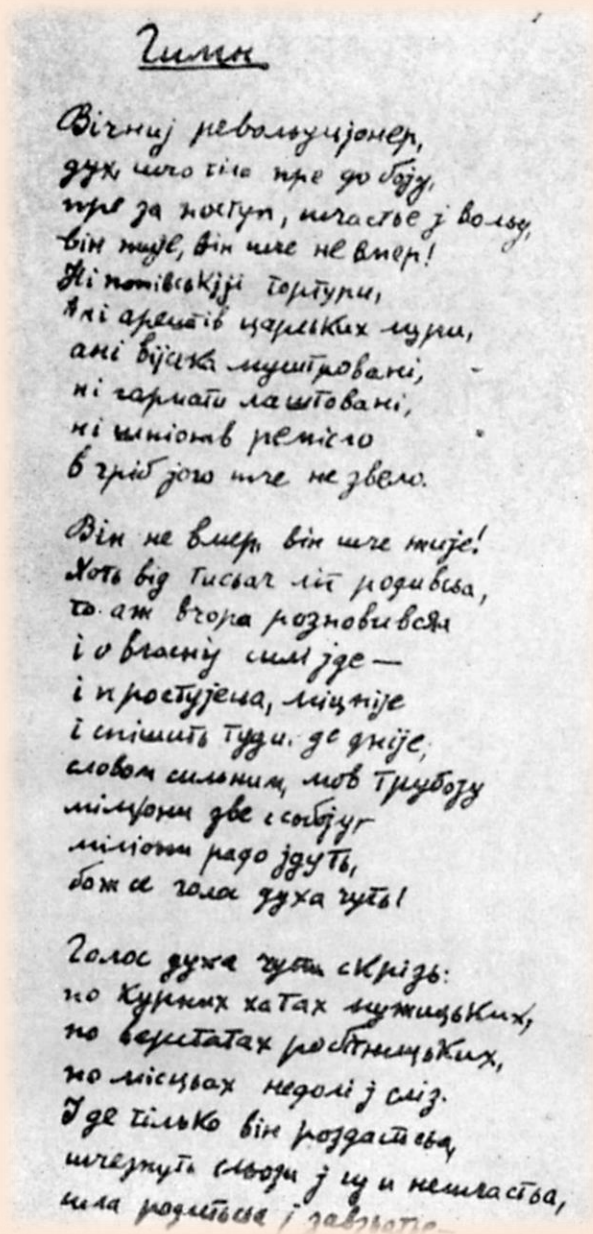 Гимн
Вічниј револьуцјонер,
дух, шчо тіло пре до боју,
пре за поступ, шчастье ј вольу,
він жије, він шче не вмер!
Ні попівськіјі тортури,
Ані арештів царських мури,
ані війська муштровані,
ні гармати лаштовані,
ні шпіонів ремісло
в гріб јого шче не звело.
Він не вмер, він шче жије!
Хоть від тисьач літ родивсьа,
то аж вчора розновився
і о власніј силі јде —
і простујесьа, міцніје
і спішить туди, де дніје,
словом сильним, мов трубоју
мільјони зве с собоју,
міліони радо јдуть,
бо ж се голос духа чуть!
Голос духа чути скрізь:
по курних хатах мужицьких,
по верстатах робітницьких,
по місцьах недолі ј сліз.
І де тілько він роздастьсьа,
шчезнуть сльози ј нешчастьа,
сила родитьсьа і завзьатье